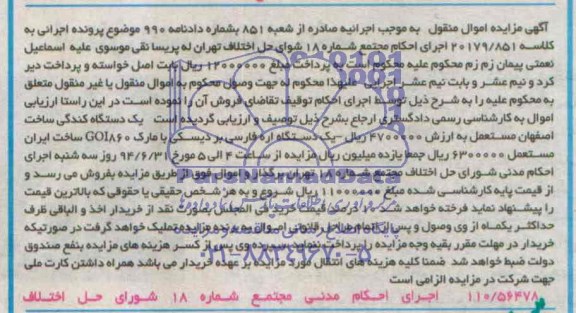 آگهی مزایده اموال منقول  به موجب اجرائیه صادره از شعبه ۸۵۱ بشماره دادنامه ۹۹۰ موضوع پرونده اجرائی به
کلاسه ۲۰۱۷۹/۸۵۱ اجرای احکام مجتمع شماره ۱۸ شوای حل اختلاف تهران له پریسا نقی موسوی علیه اسماعیل
نعمتی پیمان زم زم محکوم علیه محکوم است به پرداخت مبلغ ۱۲۰۰۰۰۰۰ ریال بابت اصل خواسته و پرداخت دیر
کرد و نیم عشر و بابت نیم عشر اجرایی علیهذا محکوم له جهت وصول محکوم به اموال منقول یا غیر منقول متعلق
به محکوم علیه را به شرح ذیل توسط اجرای احکام توقیف تقاضای فروش آن را نموده است در این راستا ارزیابی
اموال به کارشناسی رسمی دادگستری ارجاع بشرح ذیل توصیف و ارزیابی گردیده است  یک دستگاه کندگی ساخت
اصفهان مستعمل به ارزش ۴۷۰۰۰۰۰ ریال -یک دستگاه اره فارسی بر دیسکی با مارک GOI۸۶۰ ساخت ایران
مستعمل ۶۳۰۰۰۰۰ ریال جمعا یازده میلیون ریال مزایده از ساعت ۴ الی ۵ مورخ ۹۴/۶/۳۱ روز سه شنبه اجرای
احکام مدنی شورای حل اختلاف مجتمع شماره ۱۸ تهران برگذار و اموال فوق از طریق مزایده بفروش می رسد و
از قیمت پایه کارشناسی شده مبلغ ۱۱۰۰۰۰۰۰ ریال شروع و به هر شخص حقیقی یا حقوقی که بالاترین قیمت
را پیشنهاد نماید فرخته خواهد شد ۱۰ درصد قیمت خرید فی المجلس بصورت نقد از خریدار اخذ و الباقی ظرف
حداکثر یکماه از وی وصول و پس از انجام مراحل قانونی اموال به برنده مزایده تملیک خواهد گرفت در صورتیکه
خریدار در مهلت مقرر بقیه وجه مزایده را پرداخت ننماید سپرده وی پس از کسر هزینه های مزایده بنفع صندوق
دولت ضبط خواهد شد  ضمنا کلیه هزینه های انتقال مورد مزایده بر عهده خریدار می باشد همراه داشتن کارت ملی
جهت شرکت در مزایده الزامی است
۱۱۰/۵۶۴۷۸  اجرای احکام مدنی مجتمع شماره ۱۸ شورای حل اختلاف
ParsNamadData
۰۲۱-۸۸۳۴۹۶۷۰-۵